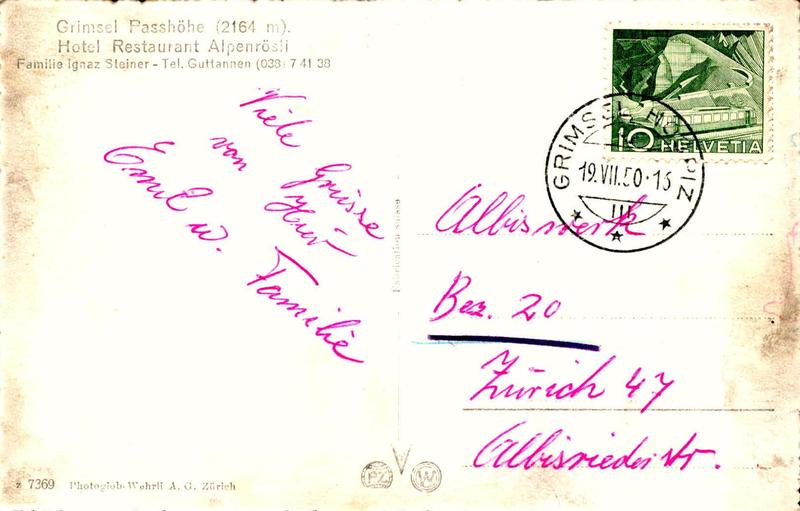 Grimsel Passhöhe (2164 m).
Hotel Restaurant Alpenrösli
Familie Ignaz Steiner - Tel. Guttannen (038) 7 41 38
10 HELVETIA
GRIMSEL HOSPIZ
19.VII.50-16
III
Viele Grüsse
von Hier
Emil u. Familie
Albiswerk
Bez. 20
Zürich 47
Albisriederstr.
Fabrication suisse
PZ W
z 7369 Photoglob-Wehrli A. G. Zürich